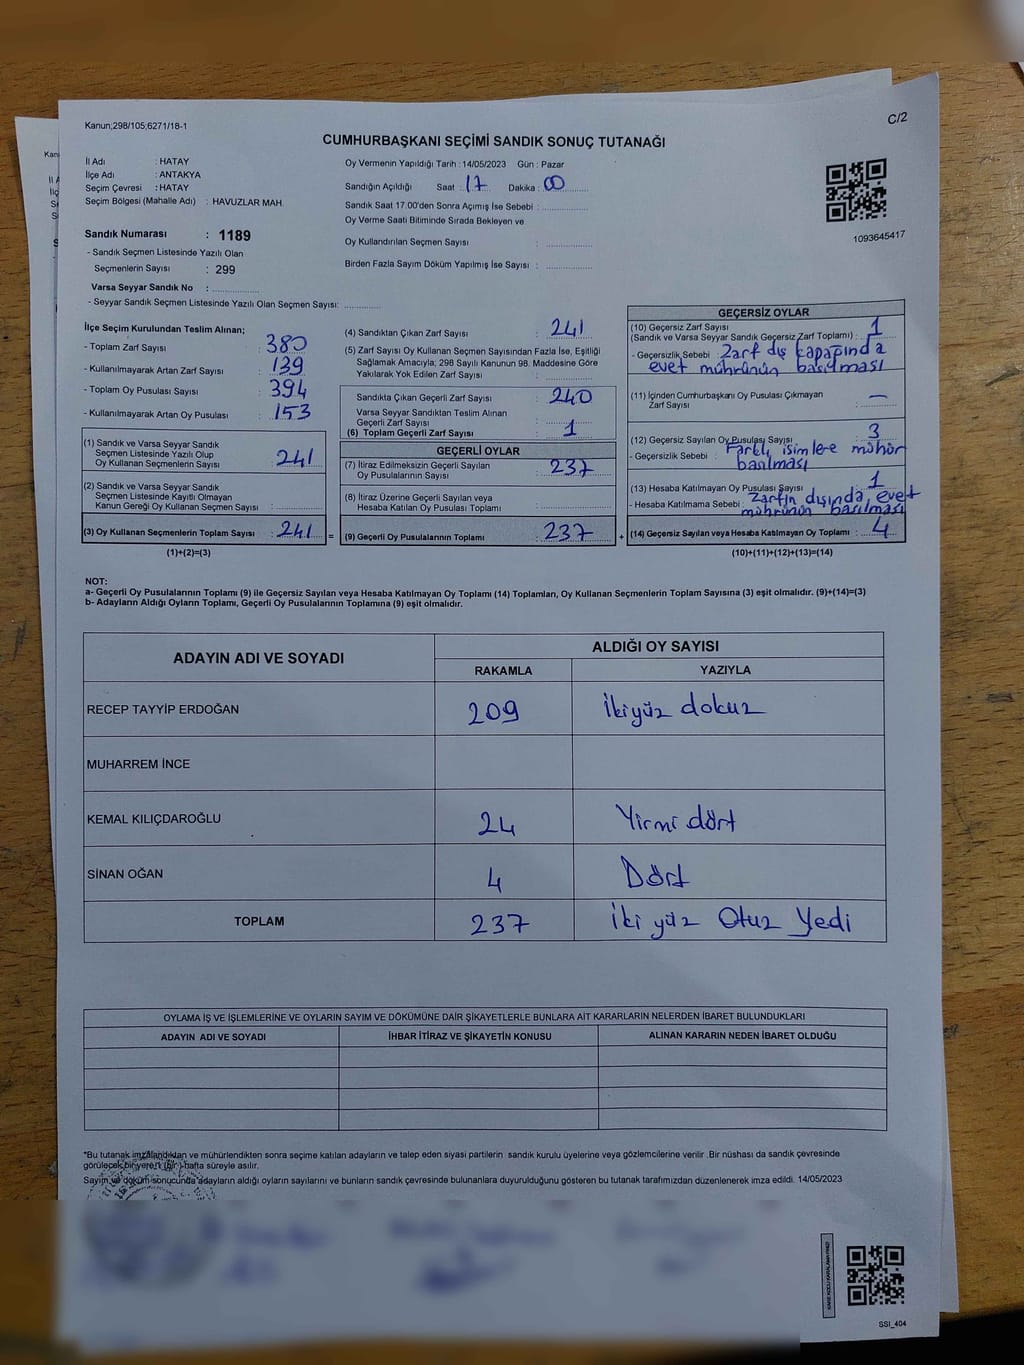 C/2
Kanun;298/105;6271/18-1
CUMHURBAŞKANI SEÇİMİ SANDIK SONUÇ TUTANAĞI
İl Adı : HATAY
İlçe Adı : ANTAKYA
Seçim Çevresi : HATAY
Seçim Bölgesi (Mahalle Adı) : HAVUZLAR MAH.
Sandık Numarası : 1189
- Sandık Seçmen Listesinde Yazılı Olan
Seçmenlerin Sayısı : 299
Varsa Seyyar Sandık No :
- Seyyar Sandık Seçmen Listesinde Yazılı Olan Seçmen Sayısı:
Oy Vermenin Yapıldığı Tarih : 14/05/2023 Gün : Pazar
Sandığın Açıldığı Saat : 17 Dakika : 00
Sandık Saat 17.00'den Sonra Açımış İse Sebebi :
Oy Verme Saati Bitiminde Sırada Bekleyen ve
Oy Kullandırılan Seçmen Sayısı :
Birden Fazla Sayım Döküm Yapılmış İse Sayısı :
1093645417
İlçe Seçim Kurulundan Teslim Alınan;
- Toplam Zarf Sayısı : 380
- Kullanılmayarak Artan Zarf Sayısı : 139
- Toplam Oy Pusulası Sayısı : 394
- Kullanılmayarak Artan Oy Pusulası : 153
(1) Sandık ve Varsa Seyyar Sandık
Seçmen Listesinde Yazılı Olup
Oy Kullanan Seçmenlerin Sayısı : 241
(2) Sandık ve Varsa Seyyar Sandık
Seçmen Listesinde Kayıtlı Olmayan
Kanun Gereği Oy Kullanan Seçmen Sayısı :
(3) Oy Kullanan Seçmenlerin Toplam Sayısı : 241 =
(1)+(2)=(3)
(4) Sandıktan Çıkan Zarf Sayısı : 241
(5) Zarf Sayısı Oy Kullanan Seçmen Sayısından Fazla İse, Eşitliği
Sağlamak Amacıyla, 298 Sayılı Kanunun 98. Maddesine Göre
Yakılarak Yok Edilen Zarf Sayısı :
Sandıkta Çıkan Geçerli Zarf Sayısı : 240
Varsa Seyyar Sandıktan Teslim Alınan
Geçerli Zarf Sayısı :
(6) Toplam Geçerli Zarf Sayısı : 1
GEÇERLİ OYLAR
(7) İtiraz Edilmeksizin Geçerli Sayılan
Oy Pusulalarının Sayısı : 237
(8) İtiraz Üzerine Geçerli Sayılan veya
Hesaba Katılan Oy Pusulası Toplamı :
(9) Geçerli Oy Pusulalarının Toplamı : 237 +
GEÇERSİZ OYLAR
(10) Geçersiz Zarf Sayısı
(Sandık ve Varsa Seyyar Sandık Geçersiz Zarf Toplamı) : 1
- Geçersizlik Sebebi : Zarf dış kapağında
evet mührünün basılması
(11) İçinden Cumhurbaşkanı Oy Pusulası Çıkmayan
Zarf Sayısı : —
(12) Geçersiz Sayılan Oy Pusulası Sayısı : 3
- Geçersizlik Sebebi : Farklı isimlere mühür
basılması
(13) Hesaba Katılmayan Oy Pusulası Sayısı : 1
- Hesaba Katılmama Sebebi : Zarfın dışında evet
mührünün basılması
(14) Geçersiz Sayılan veya Hesaba Katılmayan Oy Toplamı : 4
(10)+(11)+(12)+(13)=(14)
NOT:
a- Geçerli Oy Pusulalarının Toplamı (9) ile Geçersiz Sayılan veya Hesaba Katılmayan Oy Toplamı (14) Toplamları, Oy Kullanan Seçmenlerin Toplam Sayısına (3) eşit olmalıdır. (9)+(14)=(3)
b- Adayların Aldığı Oyların Toplamı, Geçerli Oy Pusulalarının Toplamına (9) eşit olmalıdır.
ADAYIN ADI VE SOYADI
ALDIĞI OY SAYISI
RAKAMLA YAZIYLA
RECEP TAYYİP ERDOĞAN 209 İkiyüz dokuz
MUHARREM İNCE
KEMAL KILIÇDAROĞLU 24 Yirmi dört
SİNAN OĞAN 4 Dört
TOPLAM 237 İki yüz Otuz Yedi
OYLAMA İŞ VE İŞLEMLERİNE VE OYLARIN SAYIM VE DÖKÜMÜNE DAİR ŞİKAYETLERLE BUNLARA AİT KARARLARIN NELERDEN İBARET BULUNDUKLARI
ADAYIN ADI VE SOYADI İHBAR İTİRAZ VE ŞİKAYETİN KONUSU ALINAN KARARIN NEDEN İBARET OLDUĞU
*Bu tutanak imzalandıktan ve mühürlendikten sonra seçime katılan adayların ve talep eden siyasi partilerin sandık kurulu üyelerine veya gözlemcilerine verilir .Bir nüshası da sandık çevresinde
görülecek bir yere 1 (bir ) hafta süreyle asılır.
Sayım ve döküm sonucunda adayların aldığı oyların sayılarını ve bunların sandık çevresinde bulunanlara duyurulduğunu gösteren bu tutanak tarafımızdan düzenlenerek imza edildi. 14/05/2023
SSI_404